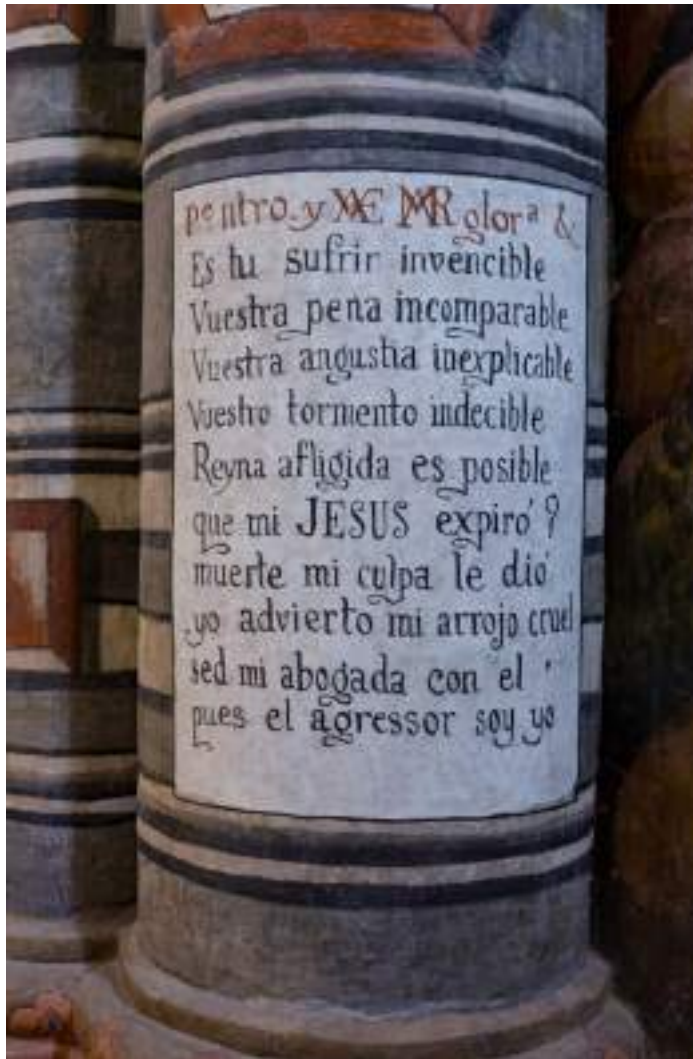 pentro y AVE MAR glorª &
Es tu sufrir invencible
Vuestra pena incomparable
Vuestra angustia inexplicable
Vuestro tormento indecible
Reyna afligida es posible
que mi JESUS expiró ?
muerte mi culpa le dió
yo advierto mi arrojo cruel
sed mi abogada con el
pues el agressor soy yo